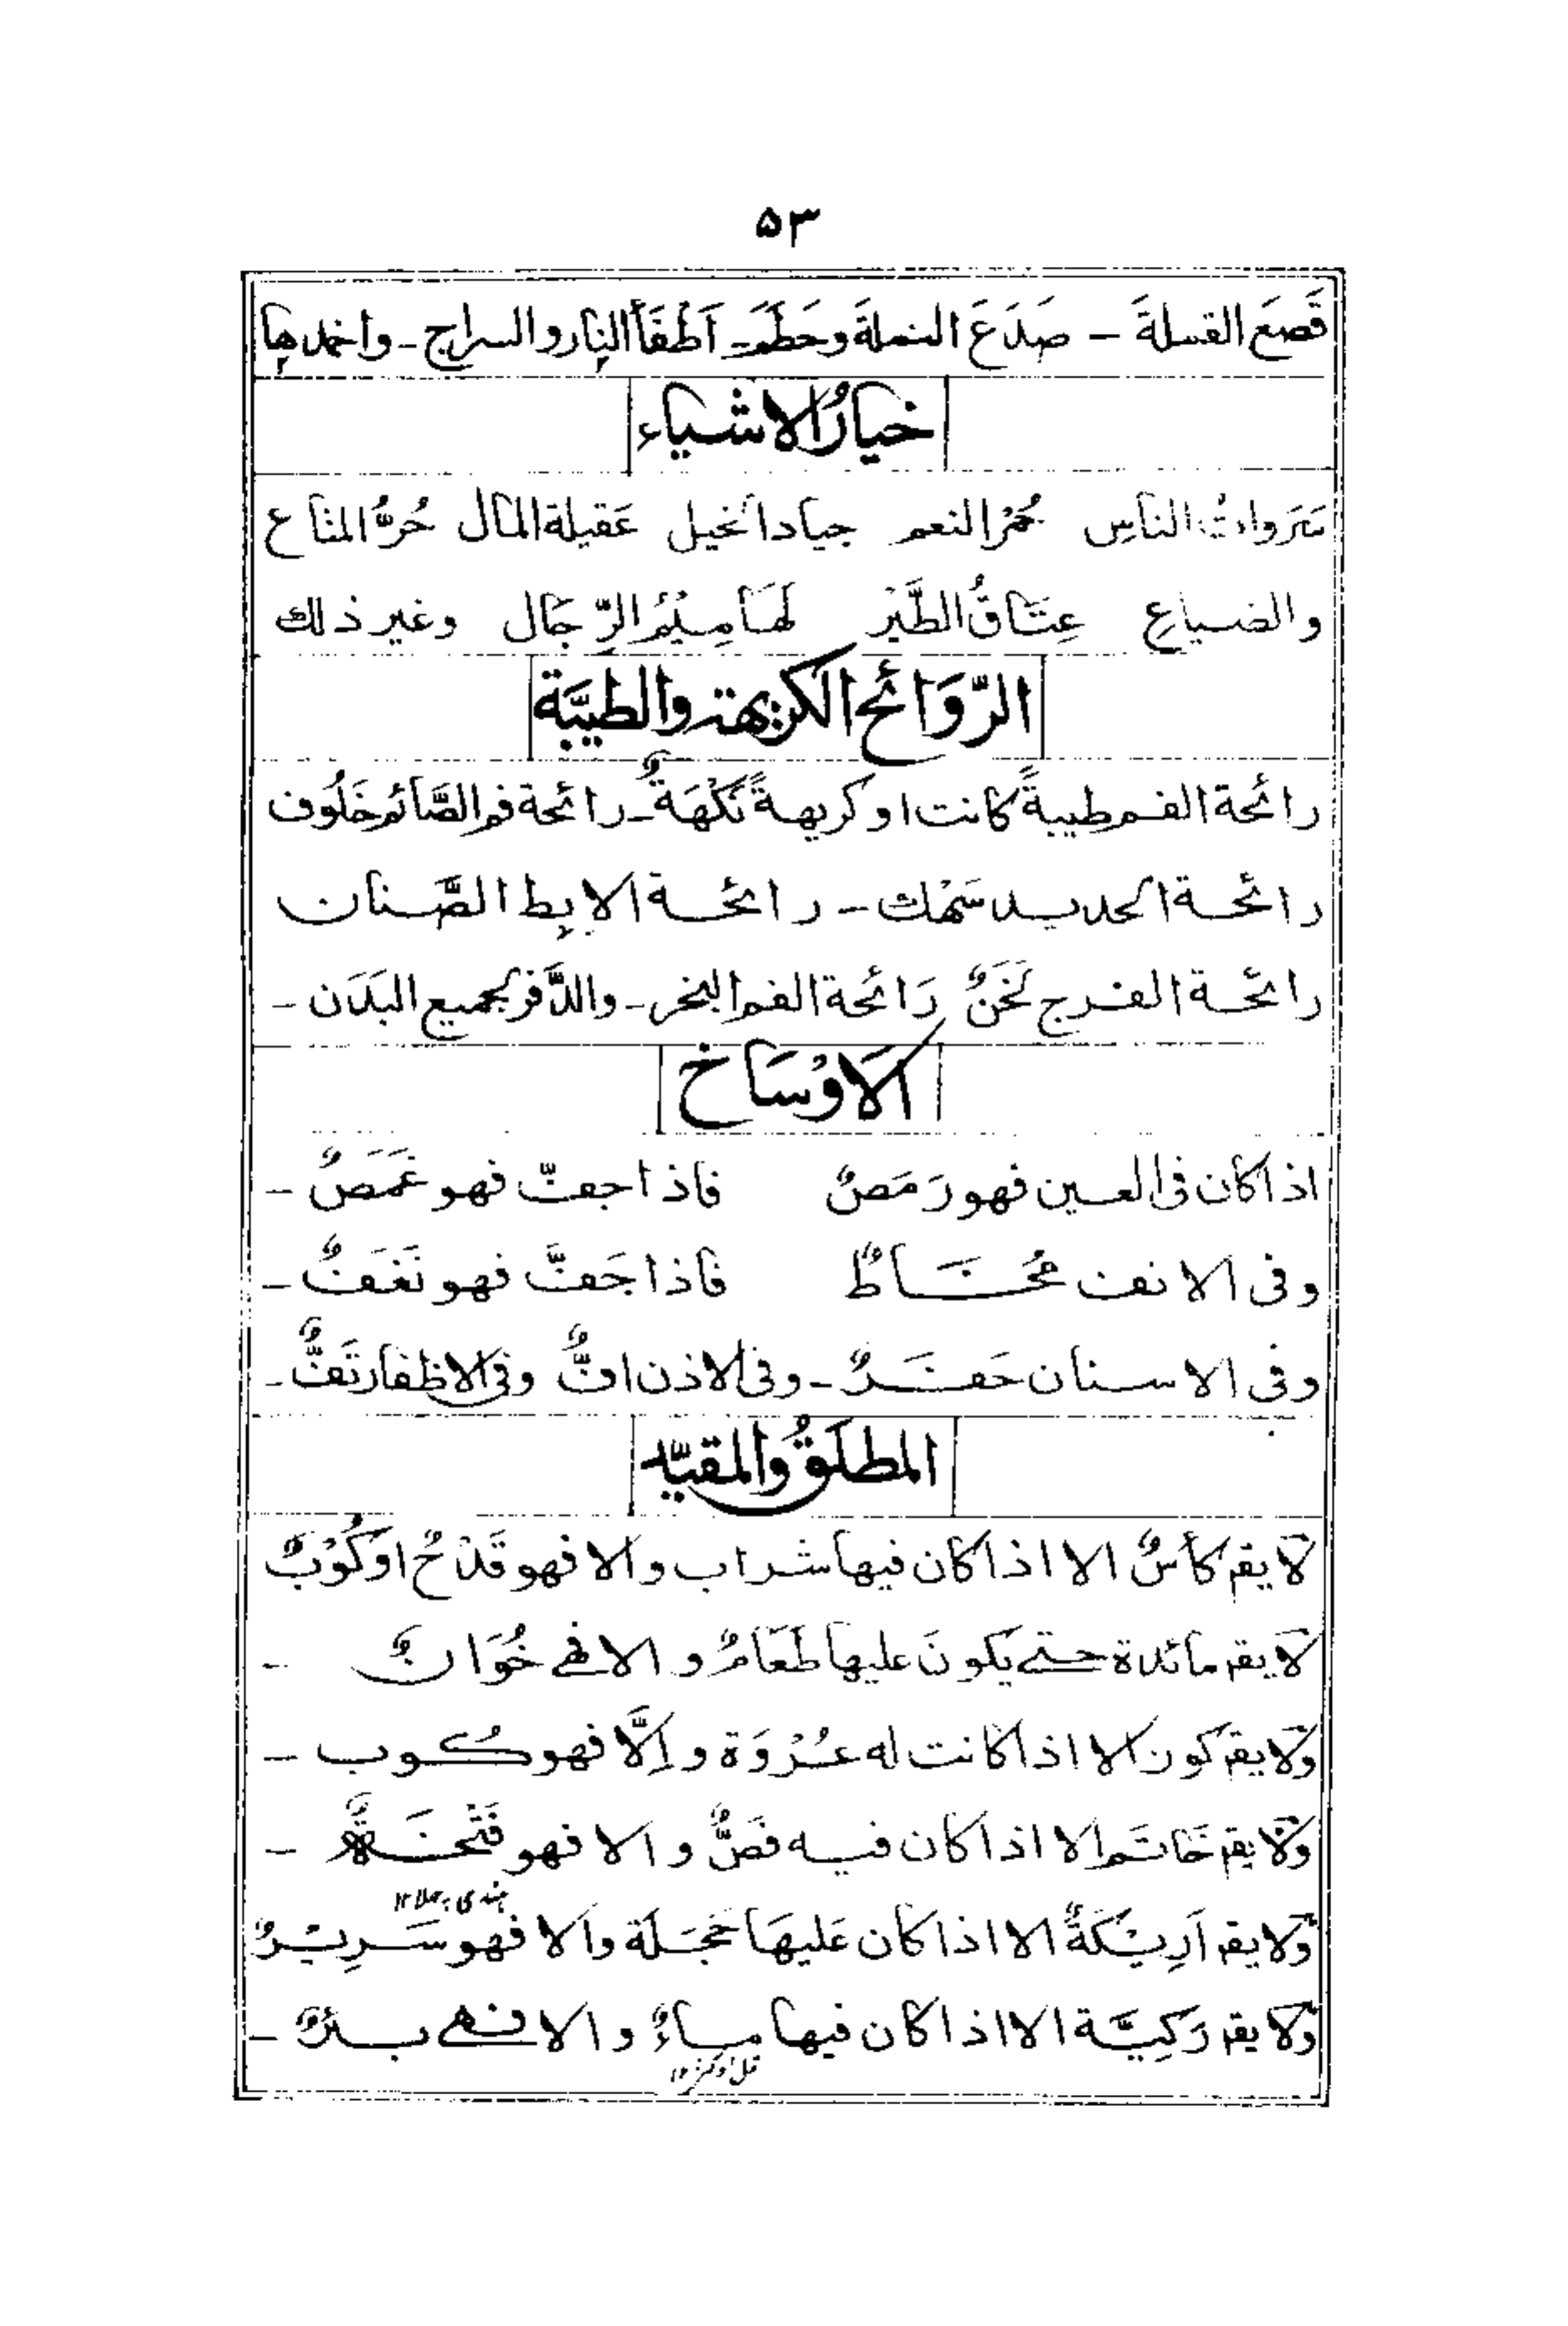 ۵۳
قَصَعَ القملةَ - صَدَعَ النملة وحَطَمَ - اَطْفَأَ النار والسراج - واخمدها
خيارُ الاشياء
سَرَواتُ الناسِ حُمْرُ النعم جياد الخيل عَقيلة المال حُرُّ المتاع
والضياعِ عِتَاقُ الطَّيْرِ لَهَامِيْمُ الرِّجَال وغير ذلك
الرَّوَائح الكريهة والطيّبَة
رائحة الفم طيبةً كانت او كريهةً نَكْهَةٌ - رائحة فم الصَّائم خَلُوف
رائحة الحديد سَهْك - رائحة الابط الصَّنان
رائحة الفرج لَخَنٌ رَائحة الفم البخر - والدَّفر لجميع البَدَن -
اَلاَوْسَاخ
اذا كان فى العين فهو رَمَصٌ فاذا جفّ فهو غَمَصٌ -
وفى الانف مُخَاطٌ فاذا جَفَّ فهو نَغَفٌ -
وفى الاسنان حَفَرٌ - وفى الاذن افٌّ وفى الاظفار تَفٌّ -
المطلَقُ والمقيّد
لَا يقم كأسٌ الا اذا كان فيها شراب والا فهو قَدَحٌ او كُوْبٌ
لَا يقم مائدة حتے يكونَ عليها طَعَامٌ و الا فهے خُوَانٌ -
وَلَا يقم كوز الا اذا كانت له عُرْوَة و اِلَّا فهو كُوب -
وَلَا يقم خَاتَم الا اذا كان فيه فَصٌّ و الا فهو فَتْخَةٌ -
وَلا يقم اَرِيْكَةٌ الا اذا كان عَليهَا حَجَلَة والا فهو سَرِيْرٌ
وَلا يقم رَكِيَّة الا اذا كان فيها ماءٌ و الا فهے بئرٌ -